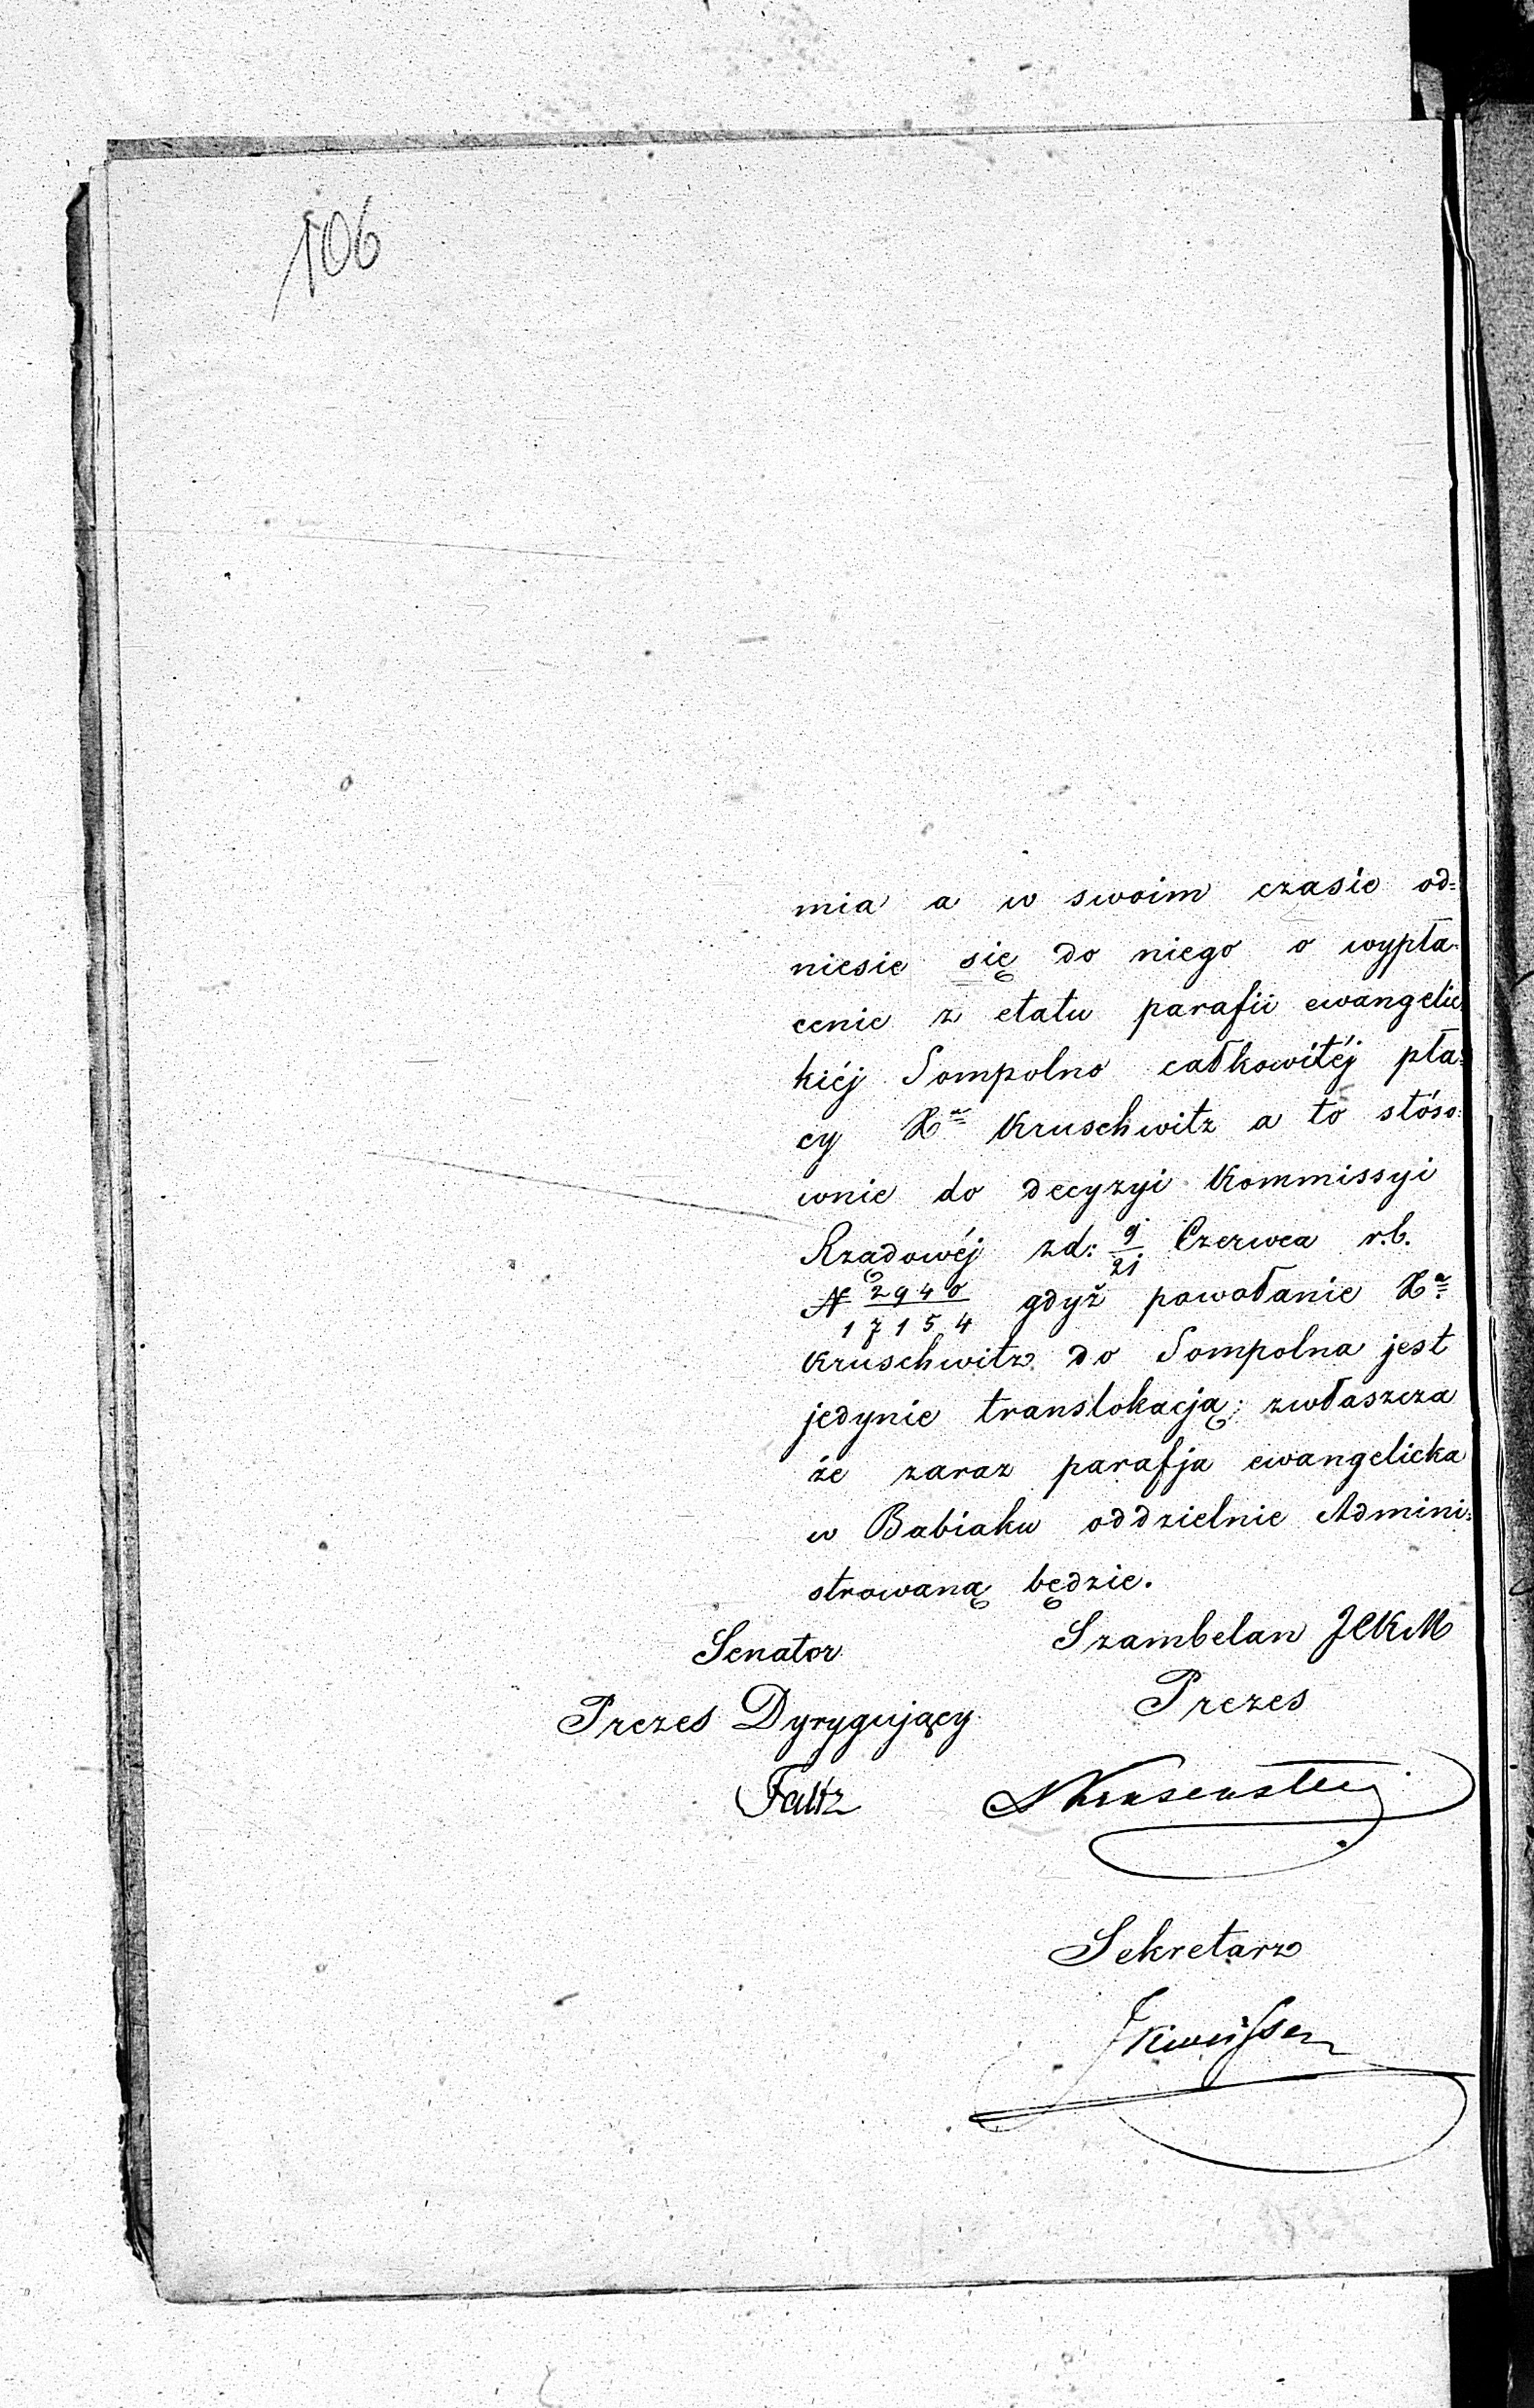 106
mia a w swoim czasie od=
niesie się do niego o wypła=
cenie z etatu parafii ewangelic
kiéj Sompolno całkowitéj pła=
cy Xa Kruschwitz a to stóso=
wnie do decyzyi Kommissyi
Rządowéj zd: 9/21 Czerwca r.b.
N 2940/17154 gdyż powołanie Xa
Kruschwitz do Sompolna jest
jedynie translokacją; zwłaszcza
że zaraz parafja ewangelicka
w Babiaku oddzielnie Admini=
strowaną będzie.
Senator Szambelan JCKM
Prezes Dyrygujący Prezes
Faltz
Sekretarz